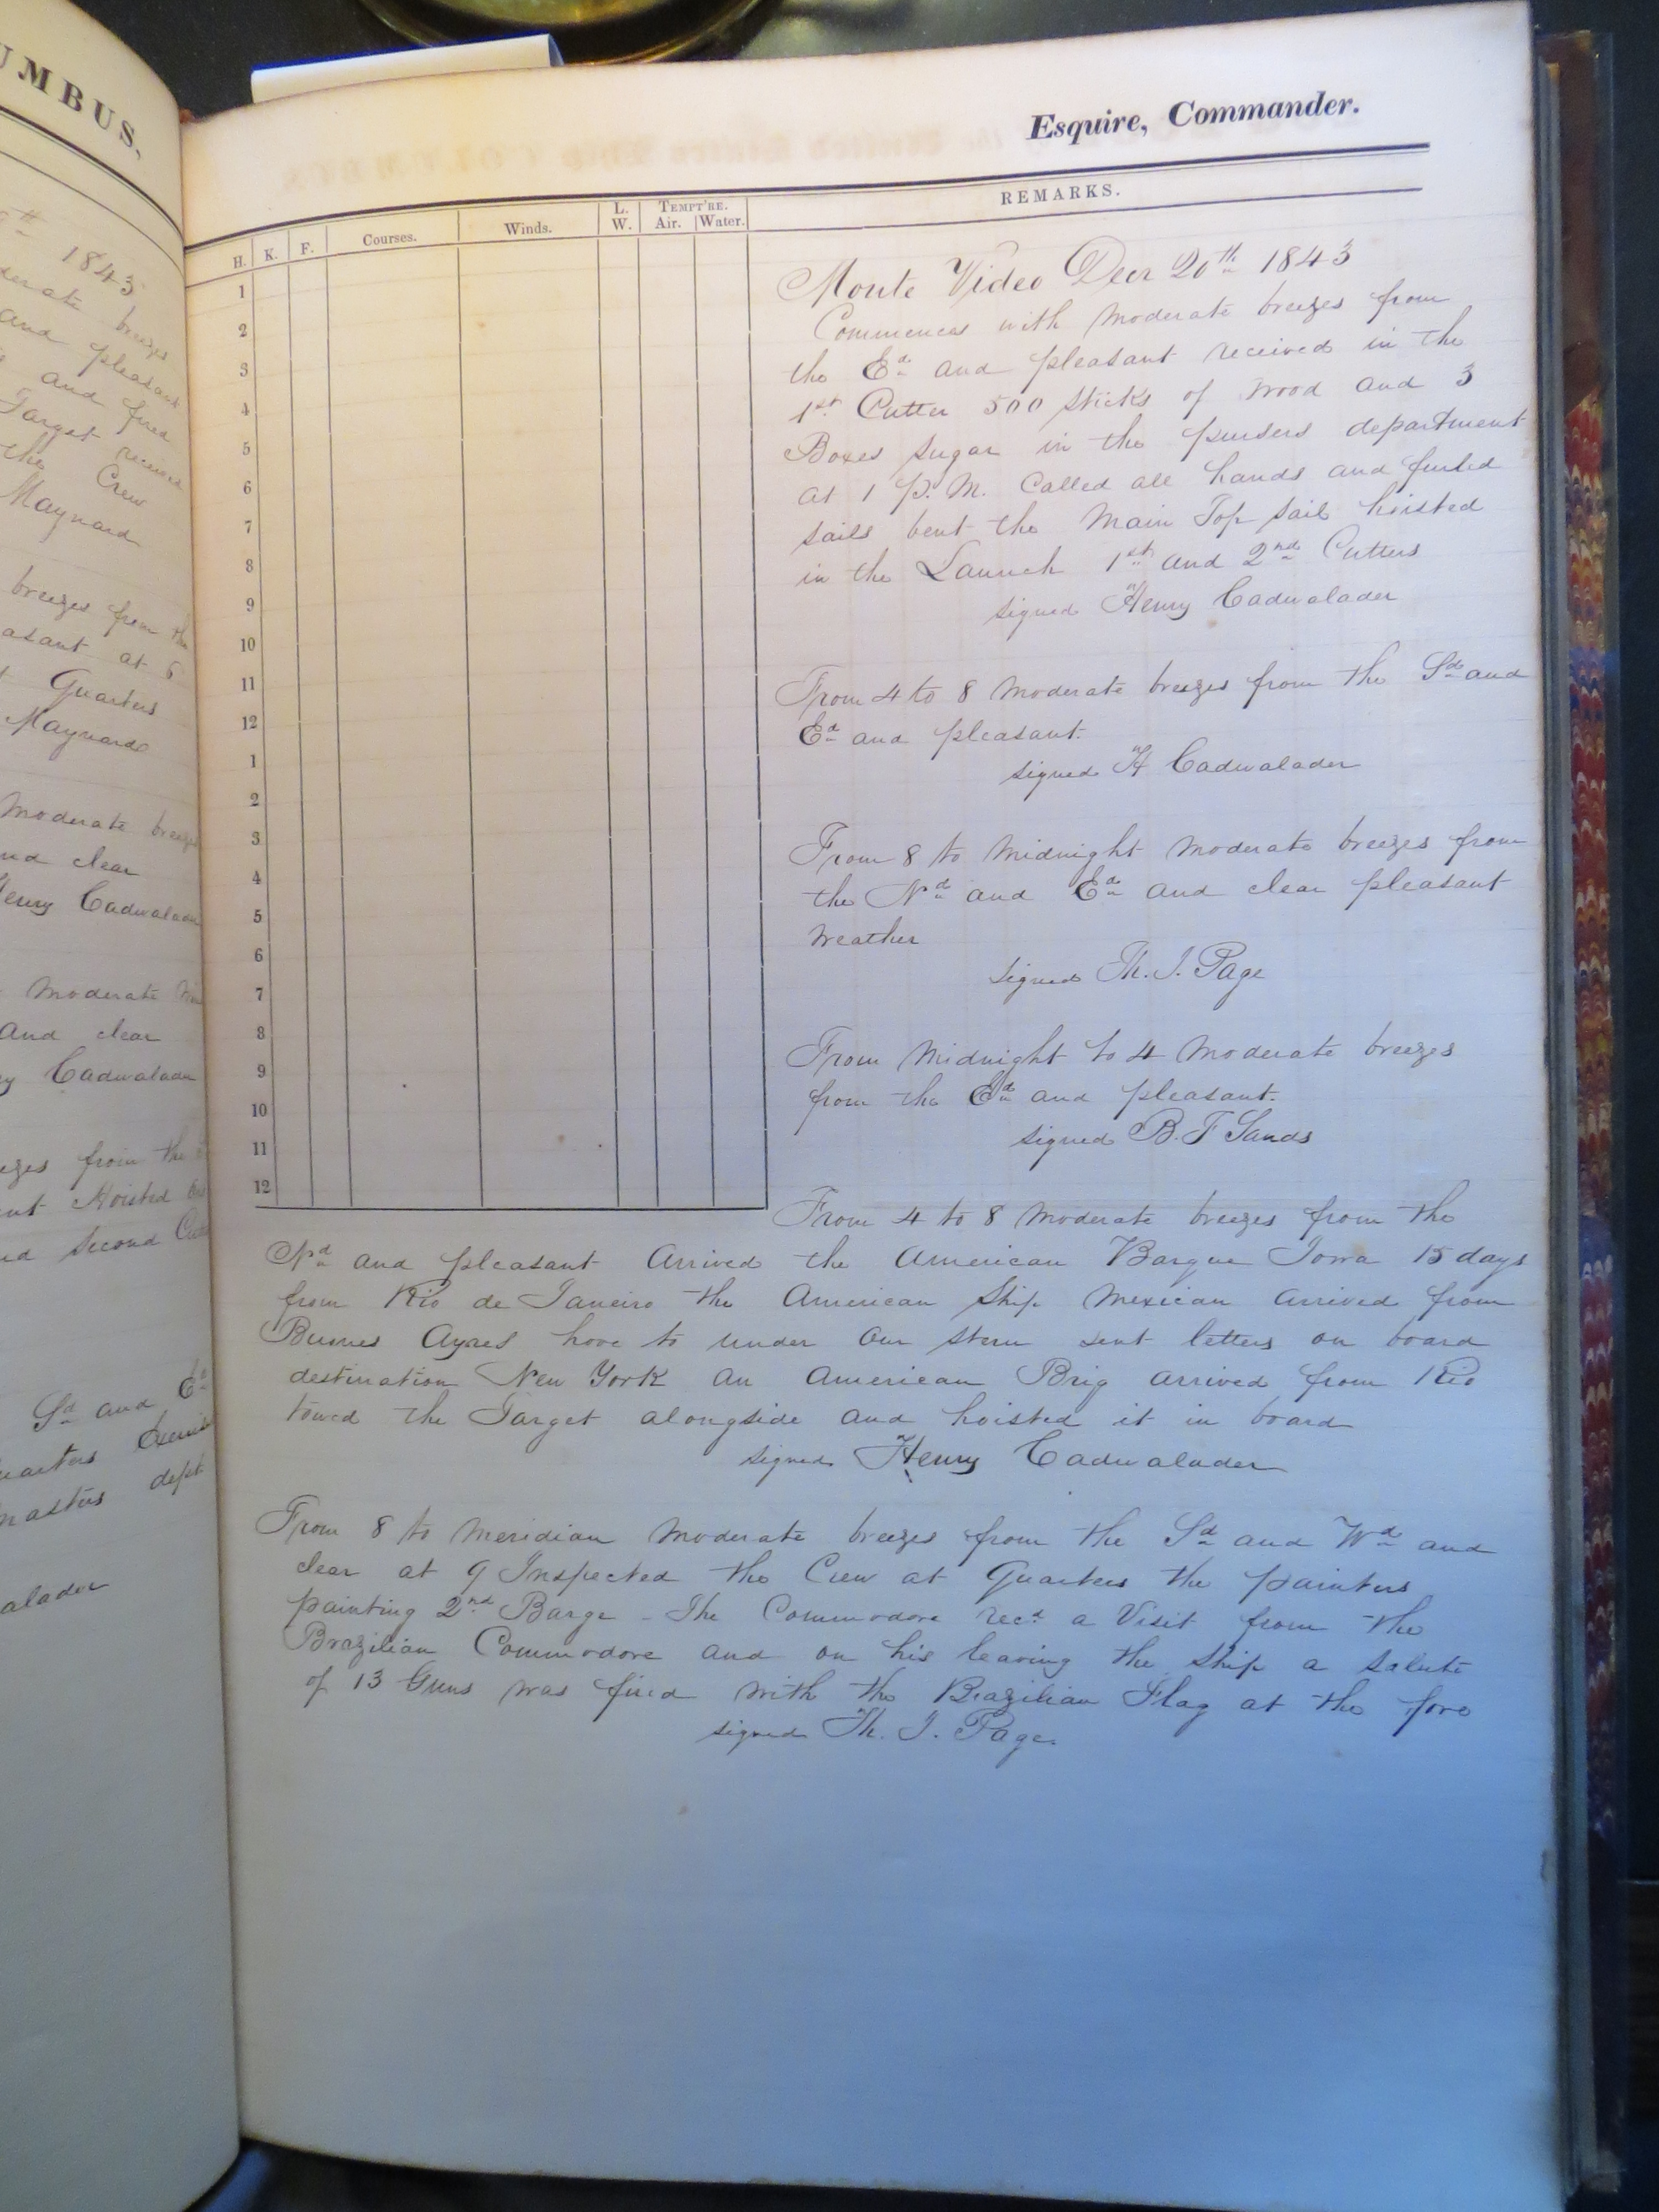 UMBUS.
1843
derate breezes
and pleasant
and fired
Target received
the Crew
Maynard
breezes from the
asant at 5
Quarters
Maynard
Moderate breezes
nd clear
Henry Cadwalader
Moderate
and clear
y Cadwalader
ezes from the
nt Hoisted
nd Second
Sd and Ed
uarters Exercise
masters dept
alader
Esquire, Commander.
H. K. F. Courses. Winds. L. W. TEMPT'RE. Air. Water. REMARKS.
1
2
3
4
5
6
7
8
9
10
11
12
1
2
3
4
5
6
7
8
9
10
11
12
Monte Video Decr 20th 1843
Commences with moderate breezes from
the Ed and pleasant received in the
1st Cutter 500 sticks of wood and 3
Boxes sugar in the pursers department
at 1 P.M. Called all hands and furled
sails bent the Main Top sail hoisted
in the Launch 1st and 2nd Cutters
signed Henry Cadwalader
From 4 to 8 moderate breezes from the Sd and
Ed and pleasant.
signed H Cadwalader
From 8 to Midnight Moderate breezes from
the Nd and Ed and clear pleasant
weather
signed Th. J. Page
From Midnight to 4 Moderate breezes
from the Ed and pleasant.
signed B. F Sands
From 4 to 8 Moderate breezes from the
Nd and pleasant Arrived the American Barque Iowa 15 days
from Rio de Janeiro the American Ship Mexican arrived from
Buenes Ayres hove to under our stern sent letters on board
destination New York an American Brig arrived from Rio
towed the Target alongside and hoisted it in board
signed Henry Cadwalader
From 8 to Meridian Moderate breezes from the Sd and Wd and
clear at 9 Inspected the Crew at Quarters the painters
painting 2nd Barge - The Commodore recd a Visit from the
Brazilian Commodore and on his leaving the ship a salute
of 13 Guns was fired with the Brazilian Flag at the fore
signed Th. J. Page.